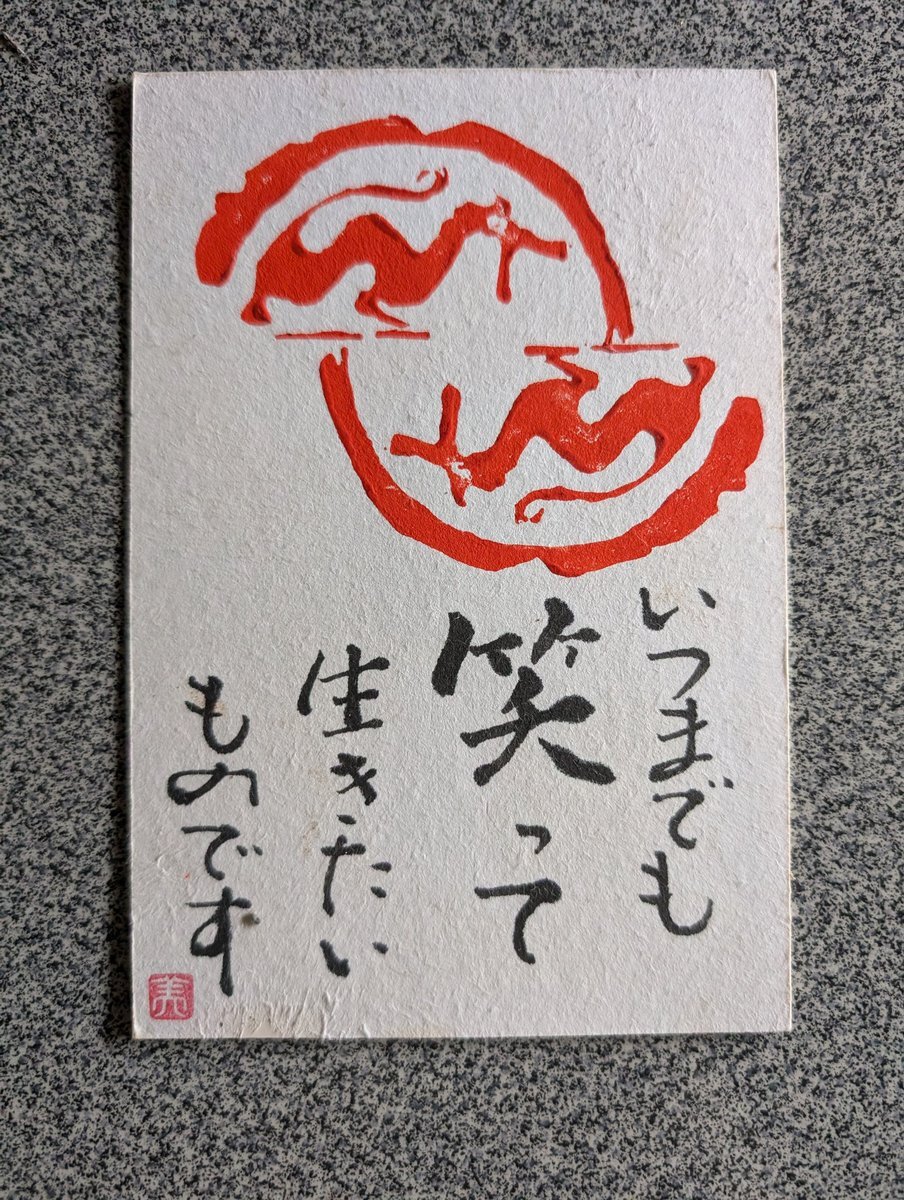 いつまでも
笑って
生きたい
ものです
美